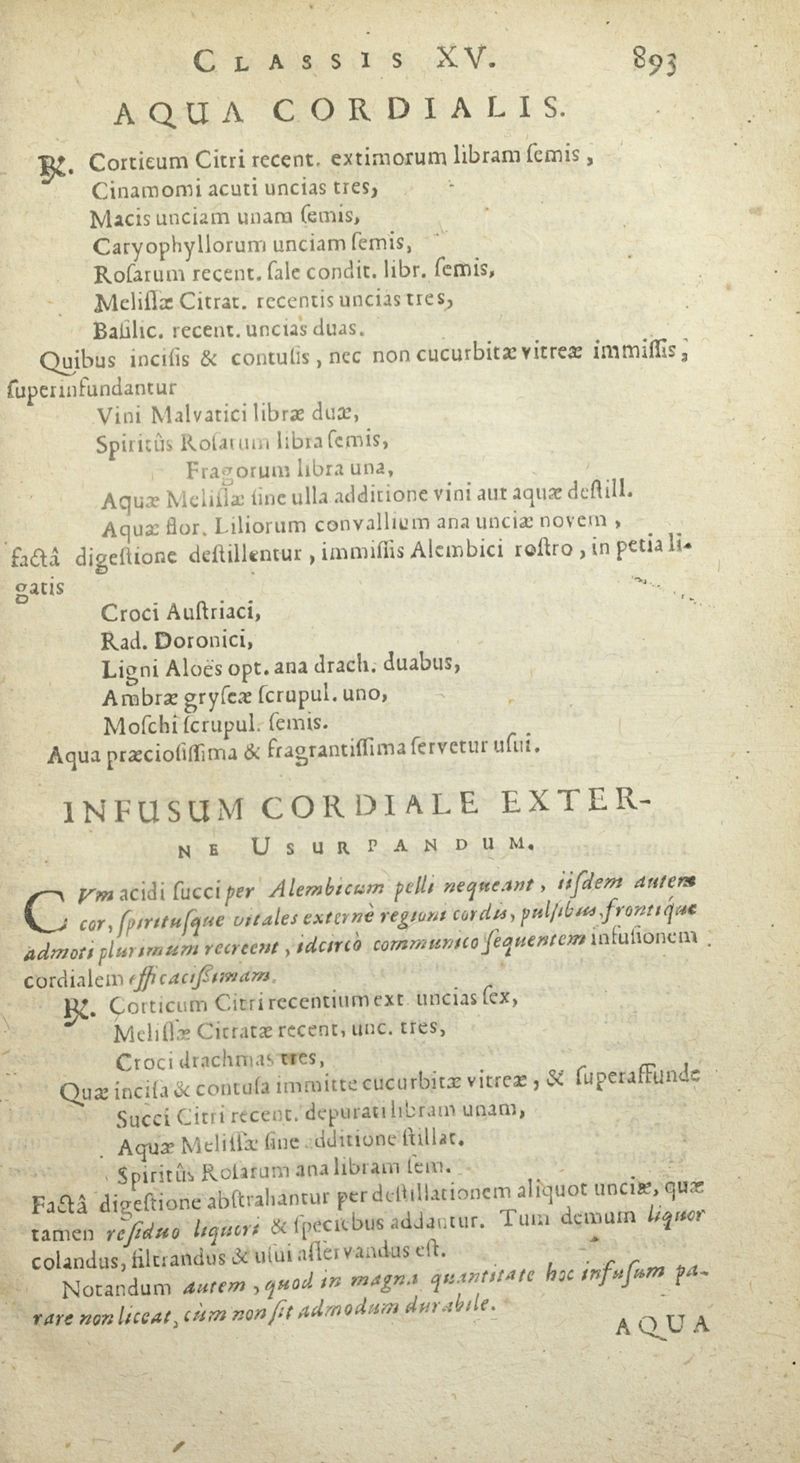 CLASSIS XV. 893
AQUA CORDIALIS.
℞. Corticum Citri recent. extimorum libram ſemis,
Cinamomi acuti uncias tres,
Macis unciam unam ſemis,
Caryophyllorum unciam ſemis,
Roſarum recent. ſale condit. libr. ſemis,
Meliſſæ Citrat. recentis uncias tres,
Baſilic. recent. uncias duas.
Quibus inciſis & contuſis, nec non cucurbitæ vitreæ immiſſis,
ſuperinfundantur
Vini Malvatici libræ duæ,
Spiritûs Roſarum libra ſemis,
Fragorum libra una,
Aquæ Meliſſæ ſine ulla additione vini aut aquæ deſtill.
Aquæ flor. Liliorum convallium ana unciæ novem,
factâ digeſtione deſtillentur, immiſſis Alembici roſtro, in petia li-
gatis
Croci Auſtriaci,
Rad. Doronici,
Ligni Aloës opt. ana drach. duabus,
Ambræ gryſeæ ſcrupul. uno,
Moſchi ſcrupul. ſemis.
Aqua præcioſiſſima & fragrantiſſima ſervetur uſui.
INFUSUM CORDIALE EXTER-
NE USURPANDUM.
CVm acidi ſucci per Alembicum pelli nequeant, iiſdem autem
cor, ſpirituſque vitales externè regioni cordis, pulſibus frontique
admoti plurimum recreent, idcircò communico ſequentem infuſionem
cordialem efficaciſſimam.
℞. Corticum Citri recentium ext. uncias ſex,
Meliſſæ Citratæ recent, unc. tres,
Croci drachmas tres,
Quæ inciſa & contuſa immitte cucurbitæ vitreæ, & ſuperaffunde
Succi Citri recent. depurati libram unam,
Aquæ Meliſſæ ſine additione ſtillat.
Spiritûs Roſarum ana libram ſem.
Factâ digeſtione abſtrahantur per deſtillationem aliquot unciæ, quæ
tamen reſiduo liquori & ſpeciebus addantur. Tum demum liquor
colandus, filtrandus & uſui aſſervandus eſt.
Notandum autem, quod in magna quantitate hoc infuſum pa-
rare non liceat, cùm non ſit admodum durabile.
AQUA